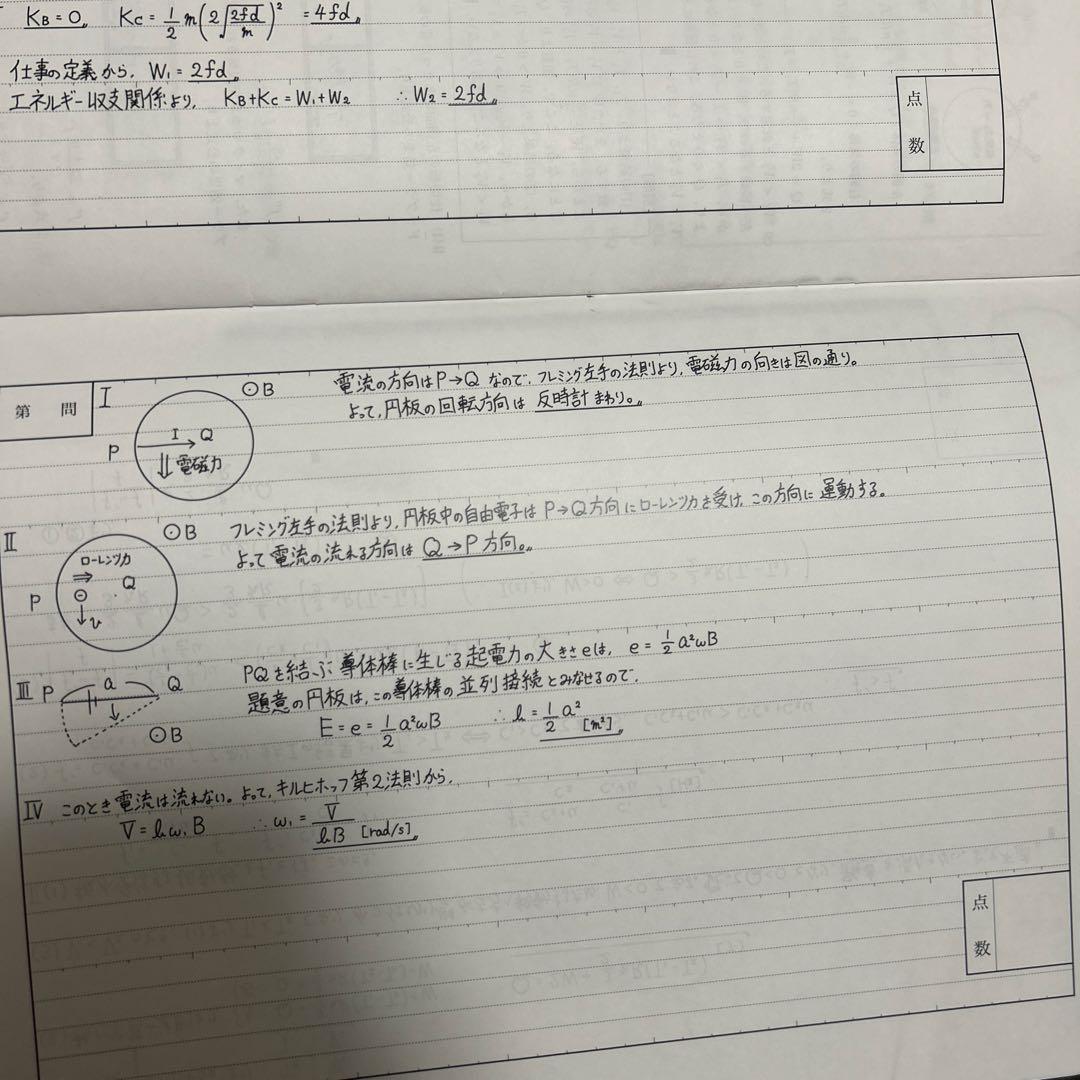 K_B = 0 〃 K_C = 1/2 m(2√(2fd/m))² = 4fd 〃
仕事の定義から、W₁ = 2fd 〃
エネルギー収支関係より、 K_B+K_C = W₁+W₂ ∴ W₂ = 2fd 〃
点数
第 問
I
⊙B
P
I
Q
電磁力
電流の方向はP→Qなので、フレミング左手の法則より、電磁力の向きは図の通り。
よって、円板の回転方向は 反時計まわり。〃
II
⊙B
ローレンツ力
P
Q
v
フレミング左手の法則より、円板中の自由電子はP→Q方向にローレンツ力を受け、この方向に運動する。
よって電流の流れる方向は Q→P方向。〃
III
P
a
Q
⊙B
PQを結ぶ導体棒に生じる起電力の大きさeは、 e = 1/2 a²ωB
題意の円板は、この導体棒の並列接続とみなせるので、
E = e = 1/2 a²ωB ∴ h = 1/2 a² [m²] 〃
IV このとき電流は流れない。よって、キルヒホッフ第2法則から、
V = hω₁B ∴ ω₁ = V/hB [rad/s] 〃
点数